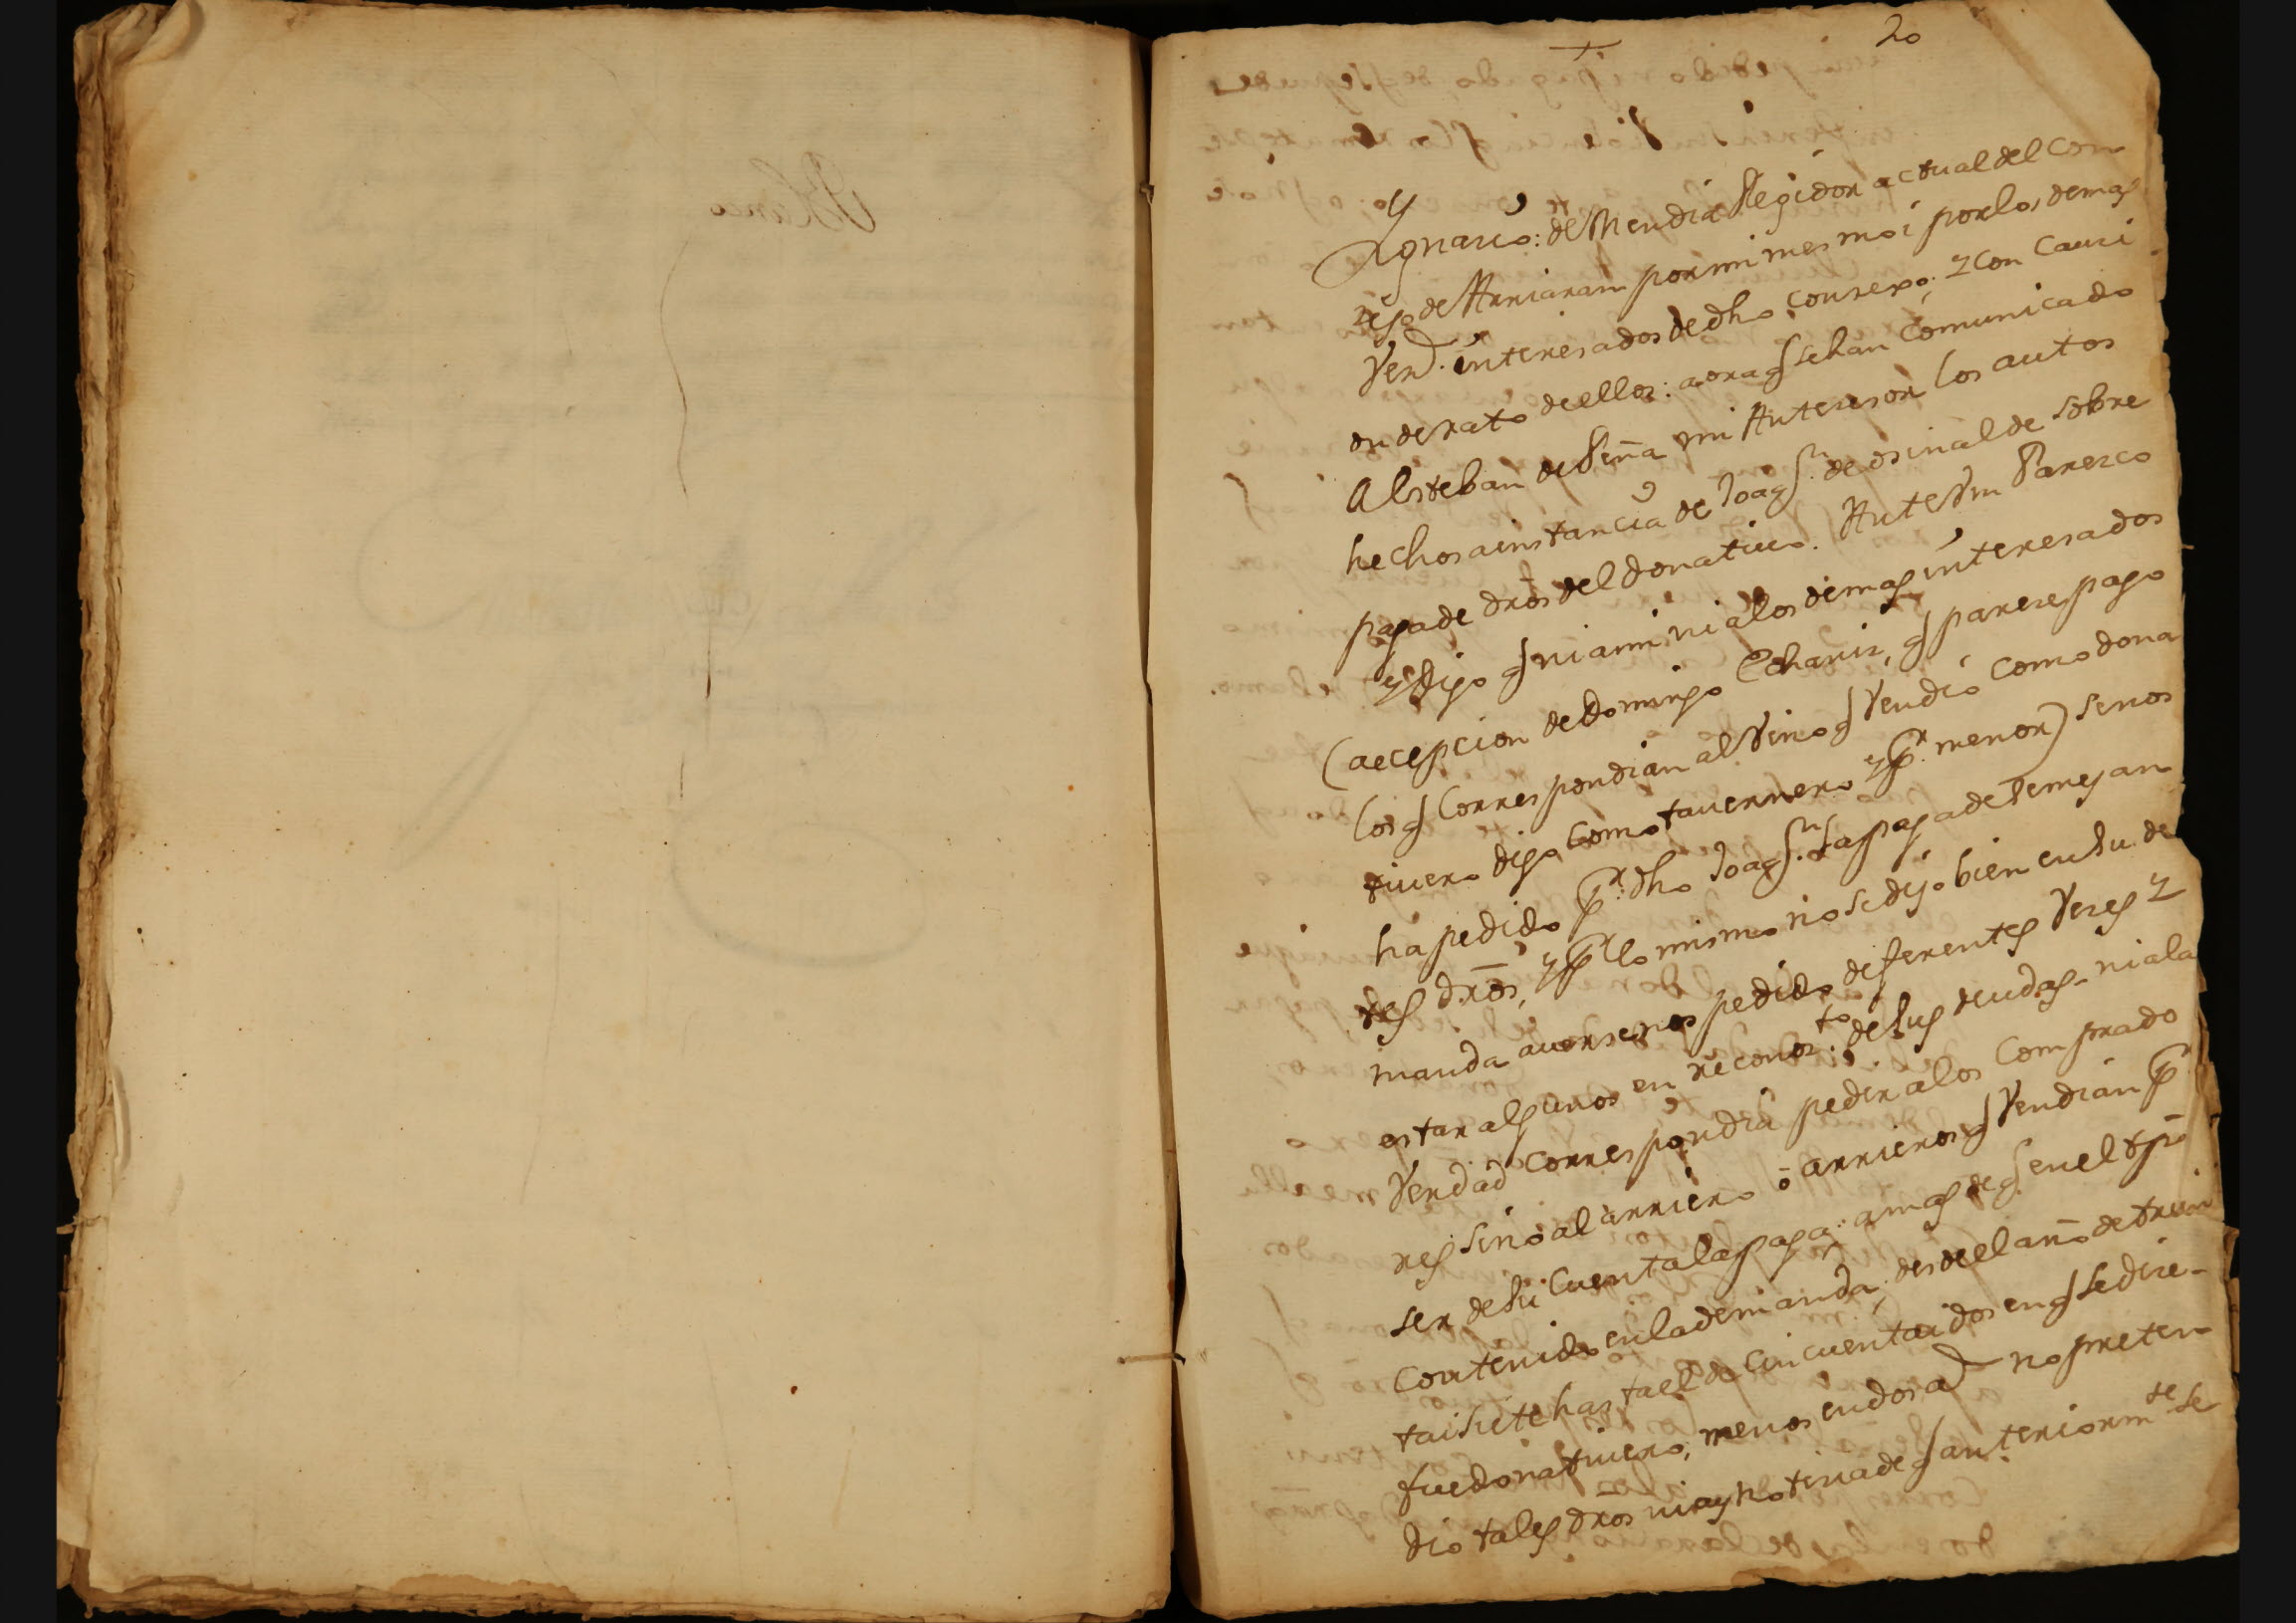 20
Ygnacio: de Mendia Regidor actual del Con
zejo de Arriaran por mi mesmo i por los demas
Verd. interesados de dho consexo; y con Cauci
on de rato de ellos: aora q se han comunicado
A Esteban de Peña mi Antecesor los autos
hechos a instancia de Joaqn. de osinalde sobre
paga de dros del donativo. Ante Vm Paresco
y digo q ni ami ni a los demas interesados
(a ecepcion de Domingo Echaniz, q parece pago
los q Correspondian al Vino q Vendió como dona
tivero digo como tavernero y pr. menor) se nos
ha pedido pr. dho Joaqn. la paga de semejan
tes dros, y pr lo mismo no se dijo bien en su de
manda aversenos pedido diferentes Veces y
estar algunos en reconozto. de sus deudas. ni a la
Verdad correspondia pedir a los Comprado
res sino al arriero ô arrieros q Vendian pr
ser de su Cuenta la paga: a mas de q en el tpo
Contenido en la demanda, desde el año de trein
tai siete hasta el de Cincuentai dos en q se dice
fue donativero, menos en dos a no preten
dio tales dros ni ay noticia de q anteriormte se